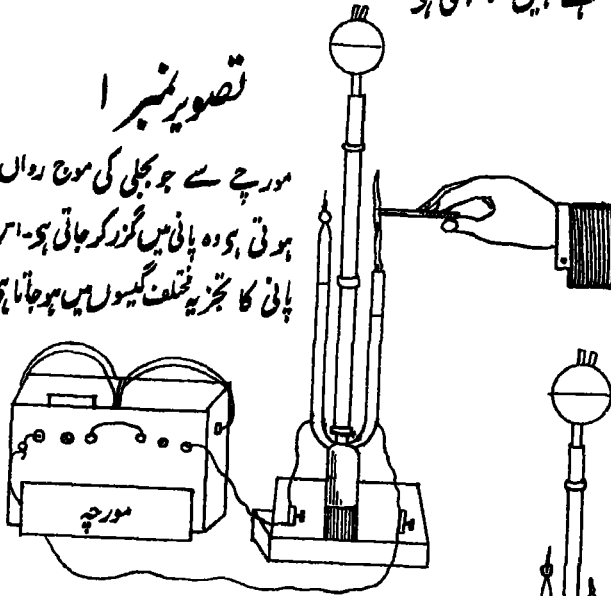 تصویر نمبر ۱
مورچے سے جو بجلی کی موج رواں
ہوتی ہی وہ پانی میں گزر کر جاتی ہی۔ اس
پانی کا تجزیہ مختلف گیسوں میں ہو جاتا ہی
مورچہ